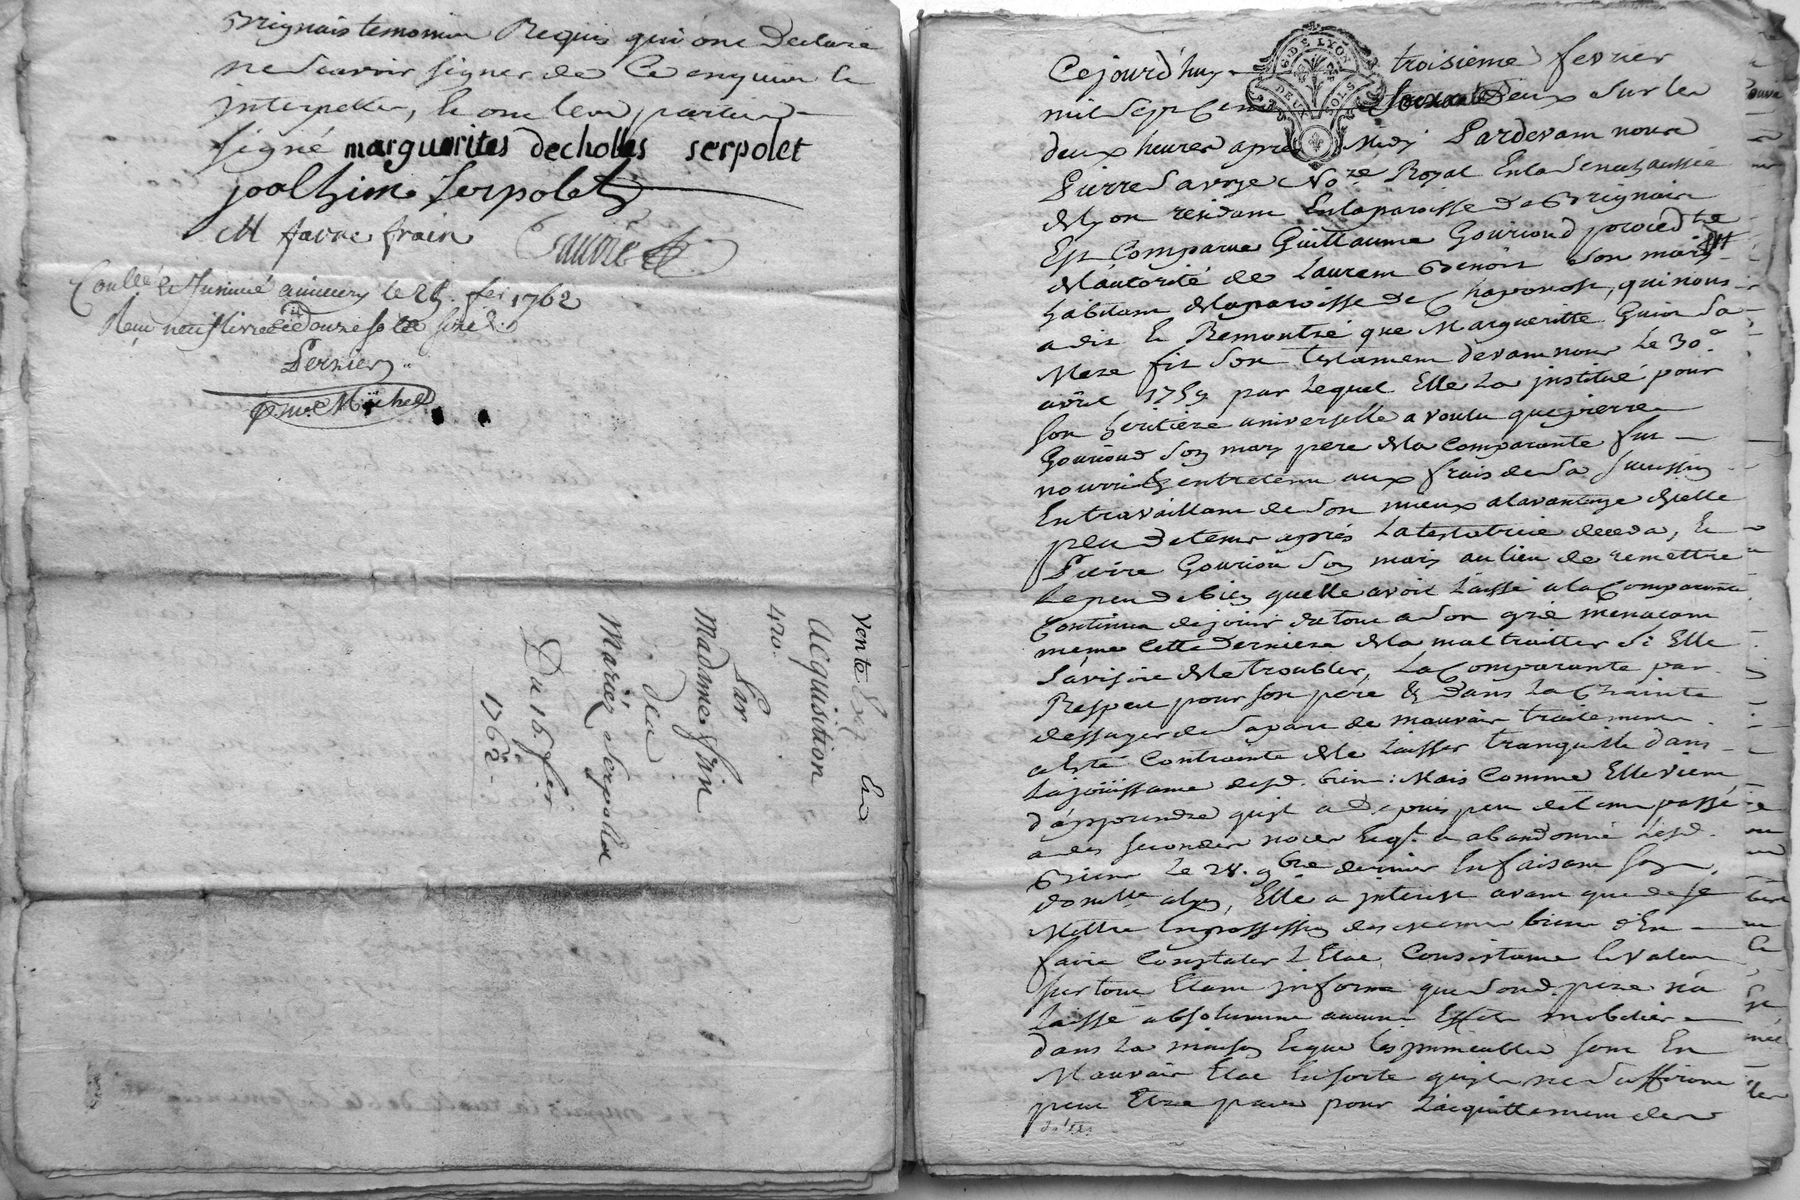 Brignais temoins Requis qui ont declaré
ne Scavoir signer de ce enquis et
interpellés, et ont les parties
signé marguerites decholles serpolet
joalhim Serpolet
M favre frain Sauvze
Coullé et Insinué le 25. fer 1762
Reçu neuf livres douze sols
Pernier
Michel
Vente En
acquisition
420.
Par
Madame frin
des
Mariés Serpollet
Du 15. fer
1762.
Cejourd'huy troisieme fevrier
G. DE LYON
DEUX SOLS
mil Sept Cent Soixante Deux Sur les
deux heures apres Midy Pardevant nous
Pierre Savoye No.re Royal En la Senechaussée
de Lyon residant En la paroisse de Brignais
Est Comparue Guillaume Gouriond procédte
de l'autorité de Laurent Benoit Son mary
habitant de la paroisse de Chaponost, qui nous
a dit et Remontre que Margueritte Guion Sa
Mere fit Son testament devant nous Le 30.e
avril 1759 par lequel Elle La institué pour
son heritiere universelle a voulu que pierre
Gouriond Son mary pere de la Comparante fut
nourri et entretenu aux frais de Sa Succession
En travaillant de Son mieux a l'avantage d'icelle
peu de tems aprés La testatrice deceda, Et
Pierre Gouriou Son mary au lieu de remettre
Le peu de bien quelle avoit Laissé a la Comparante
Continua de jouir du tout a Son gré menacant
même cette Derniere de la maltraitter Si Elle
S'avisoit de le troubler, La Comparante par
Respect pour son pere & dans La Crainte
d'essuyer de Sa part de mauvais traitement
a Esté Contrainte de le Laisser tranquille dans
La jouissance desd. biens: Mais Comme Elle vient
d'apprendre quil a depuis peu de tems passé
a des secondes noces Et qt. a abandonné Lesd.
Biens Le 28. 9bre dernier En faisant Son
domicille alieurs, Elle a interest avant que de Se
Mettre En possession des memes biens d'En
faire Constater L'Etat, Consistance Et valeur
sur tout Etant informe que Sond. pere n'a
Laissé absolument aucuns Effets mobiliers
dans La maison Et que les immeubles sont En
Mauvais Etat En sorte quils ne Suffiront
peut Etre pas pour L'acquittement des